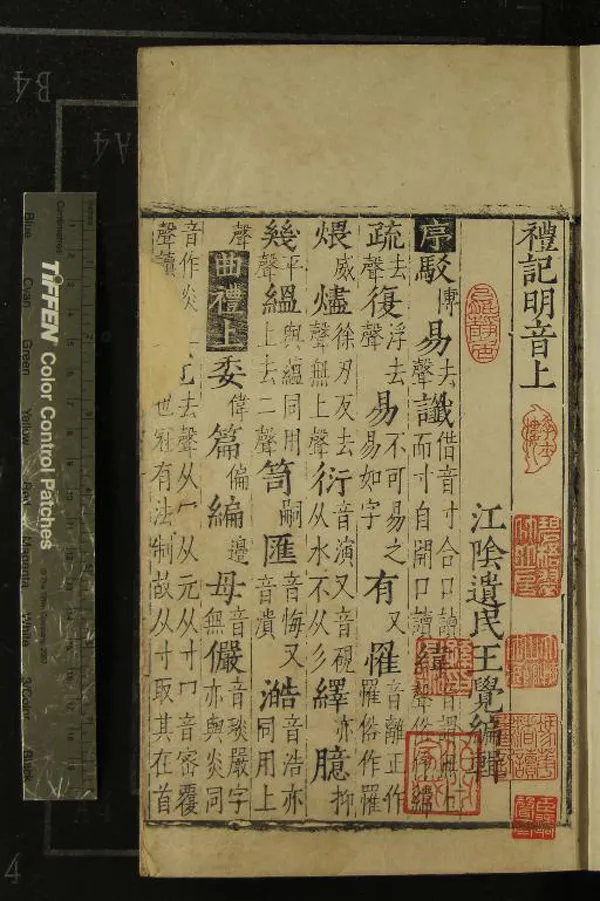 禮記明音上
江陰遺民王覺編輯
序駁傅易去聲讖借音寸合口讀而寸自開口讀緯
疏去聲復浮去聲易不可易之易如字有又罹音離正作罹俗作罹
煨威燼徐刃反去聲無上聲衍音演又音硯从水不从彡繹亦臆抑
幾平聲縕與蘊同用上去二聲笥嗣匯音悔又音潰澔音浩亦同用上
聲曲禮上委偉篇偏編邊毋音無儼音琰嚴字亦與炎同
音作炎去聲从冖从元从寸冖音密覆
聲讀也冠有法制故从寸取其在首
B4
A4
TIFFEN Color Control Patches
Centimetres
Blue
Cyan
Green
Yellow
Red
Magenta
White
3/Color
Black
4